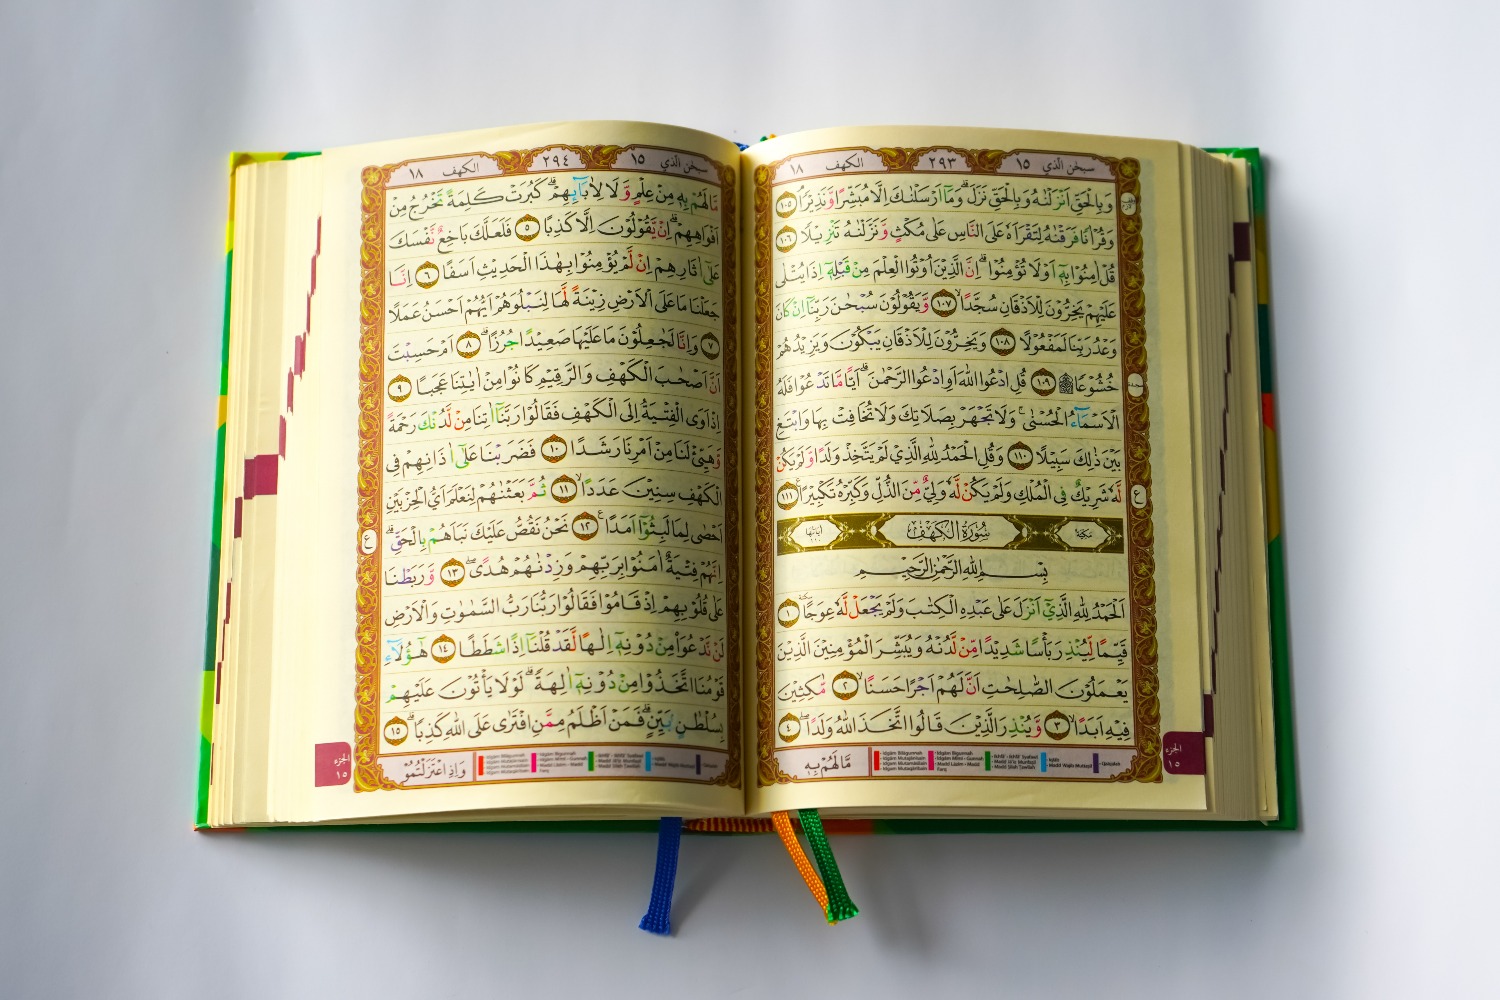 سبحن الذي ١٥ ٢٩٣ الكهف ١٨
وَبِالْحَقِّ اَنْزَلْنٰهُ وَبِالْحَقِّ نَزَلَۗ وَمَآ اَرْسَلْنٰكَ اِلَّا مُبَشِّرًا وَّنَذِيْرًاۘ ١٠٥
وَقُرْاٰنًا فَرَقْنٰهُ لِتَقْرَاَهٗ عَلَى النَّاسِ عَلٰى مُكْثٍ وَّنَزَّلْنٰهُ تَنْزِيْلًا ١٠٦
قُلْ اٰمِنُوْا بِهٖٓ اَوْ لَا تُؤْمِنُوْاۗ اِنَّ الَّذِيْنَ اُوْتُوا الْعِلْمَ مِنْ قَبْلِهٖٓ اِذَا يُتْلٰى
عَلَيْهِمْ يَخِرُّوْنَ لِلْاَذْقَانِ سُجَّدًاۙ ١٠٧ وَّيَقُوْلُوْنَ سُبْحٰنَ رَبِّنَآ اِنْ كَانَ
وَعْدُ رَبِّنَا لَمَفْعُوْلًا ١٠٨ وَيَخِرُّوْنَ لِلْاَذْقَانِ يَبْكُوْنَ وَيَزِيْدُهُمْ
خُشُوْعًا ۩ ١٠٩ قُلِ ادْعُوا اللّٰهَ اَوِ ادْعُوا الرَّحْمٰنَۗ اَيًّا مَّا تَدْعُوْا فَلَهُ
الْاَسْمَاۤءُ الْحُسْنٰىۚ وَلَا تَجْهَرْ بِصَلَاتِكَ وَلَا تُخَافِتْ بِهَا وَابْتَغِ
بَيْنَ ذٰلِكَ سَبِيْلًا ١١٠ وَقُلِ الْحَمْدُ لِلّٰهِ الَّذِيْ لَمْ يَتَّخِذْ وَلَدًا وَّلَمْ يَكُنْ
لَّهٗ شَرِيْكٌ فِى الْمُلْكِ وَلَمْ يَكُنْ لَّهٗ وَلِيٌّ مِّنَ الذُّلِّ وَكَبِّرْهُ تَكْبِيْرًا ١١١ ع
مكية سُوْرَةُ الْكَهْفِ اياتها ١١٠
بِسْمِ اللّٰهِ الرَّحْمٰنِ الرَّحِيْمِ
اَلْحَمْدُ لِلّٰهِ الَّذِيْٓ اَنْزَلَ عَلٰى عَبْدِهِ الْكِتٰبَ وَلَمْ يَجْعَلْ لَّهٗ عِوَجًاۜ ١
قَيِّمًا لِّيُنْذِرَ بَأْسًا شَدِيْدًا مِّنْ لَّدُنْهُ وَيُبَشِّرَ الْمُؤْمِنِيْنَ الَّذِيْنَ
يَعْمَلُوْنَ الصّٰلِحٰتِ اَنَّ لَهُمْ اَجْرًا حَسَنًاۙ ٢ مّٰكِثِيْنَ
فِيْهِ اَبَدًاۙ ٣ وَّيُنْذِرَ الَّذِيْنَ قَالُوا اتَّخَذَ اللّٰهُ وَلَدًاۖ ٤
مَّالَهُمْ بِهٖ
الجزء ١٥
سبحن الذي ١٥ ٢٩٤ الكهف ١٨
مَّا لَهُمْ بِهٖ مِنْ عِلْمٍ وَّلَا لِاٰبَاۤىِٕهِمْۗ كَبُرَتْ كَلِمَةً تَخْرُجُ مِنْ
اَفْوَاهِهِمْۗ اِنْ يَّقُوْلُوْنَ اِلَّا كَذِبًا ٥ فَلَعَلَّكَ بَاخِعٌ نَّفْسَكَ
عَلٰٓى اٰثَارِهِمْ اِنْ لَّمْ يُؤْمِنُوْا بِهٰذَا الْحَدِيْثِ اَسَفًا ٦ اِنَّا
جَعَلْنَا مَا عَلَى الْاَرْضِ زِيْنَةً لَّهَا لِنَبْلُوَهُمْ اَيُّهُمْ اَحْسَنُ عَمَلًا
٧ وَاِنَّا لَجٰعِلُوْنَ مَا عَلَيْهَا صَعِيْدًا جُرُزًاۗ ٨ اَمْ حَسِبْتَ
اَنَّ اَصْحٰبَ الْكَهْفِ وَالرَّقِيْمِ كَانُوْا مِنْ اٰيٰتِنَا عَجَبًا ٩
اِذْ اَوَى الْفِتْيَةُ اِلَى الْكَهْفِ فَقَالُوْا رَبَّنَآ اٰتِنَا مِنْ لَّدُنْكَ رَحْمَةً
وَّهَيِّئْ لَنَا مِنْ اَمْرِنَا رَشَدًا ١٠ فَضَرَبْنَا عَلٰٓى اٰذَانِهِمْ فِى
الْكَهْفِ سِنِيْنَ عَدَدًاۙ ١١ ثُمَّ بَعَثْنٰهُمْ لِنَعْلَمَ اَيُّ الْحِزْبَيْنِ
اَحْصٰى لِمَا لَبِثُوْٓا اَمَدًا ۚ ١٢ نَحْنُ نَقُصُّ عَلَيْكَ نَبَاَهُمْ بِالْحَقِّۗ ع
اِنَّهُمْ فِتْيَةٌ اٰمَنُوْا بِرَبِّهِمْ وَزِدْنٰهُمْ هُدًىۖ ١٣ وَّرَبَطْنَا
عَلٰى قُلُوْبِهِمْ اِذْ قَامُوْا فَقَالُوْا رَبُّنَا رَبُّ السَّمٰوٰتِ وَالْاَرْضِ
لَنْ نَّدْعُوَا۟ مِنْ دُوْنِهٖٓ اِلٰهًا لَّقَدْ قُلْنَآ اِذًا شَطَطًا ١٤ هٰٓؤُلَاۤءِ
قَوْمُنَا اتَّخَذُوْا مِنْ دُوْنِهٖٓ اٰلِهَةًۗ لَوْلَا يَأْتُوْنَ عَلَيْهِمْ
بِسُلْطٰنٍۢ بَيِّنٍۗ فَمَنْ اَظْلَمُ مِمَّنِ افْتَرٰى عَلَى اللّٰهِ كَذِبًاۗ ١٥
وَاِذِ اعْتَزَلْتُمُوْ
الجزء ١٥